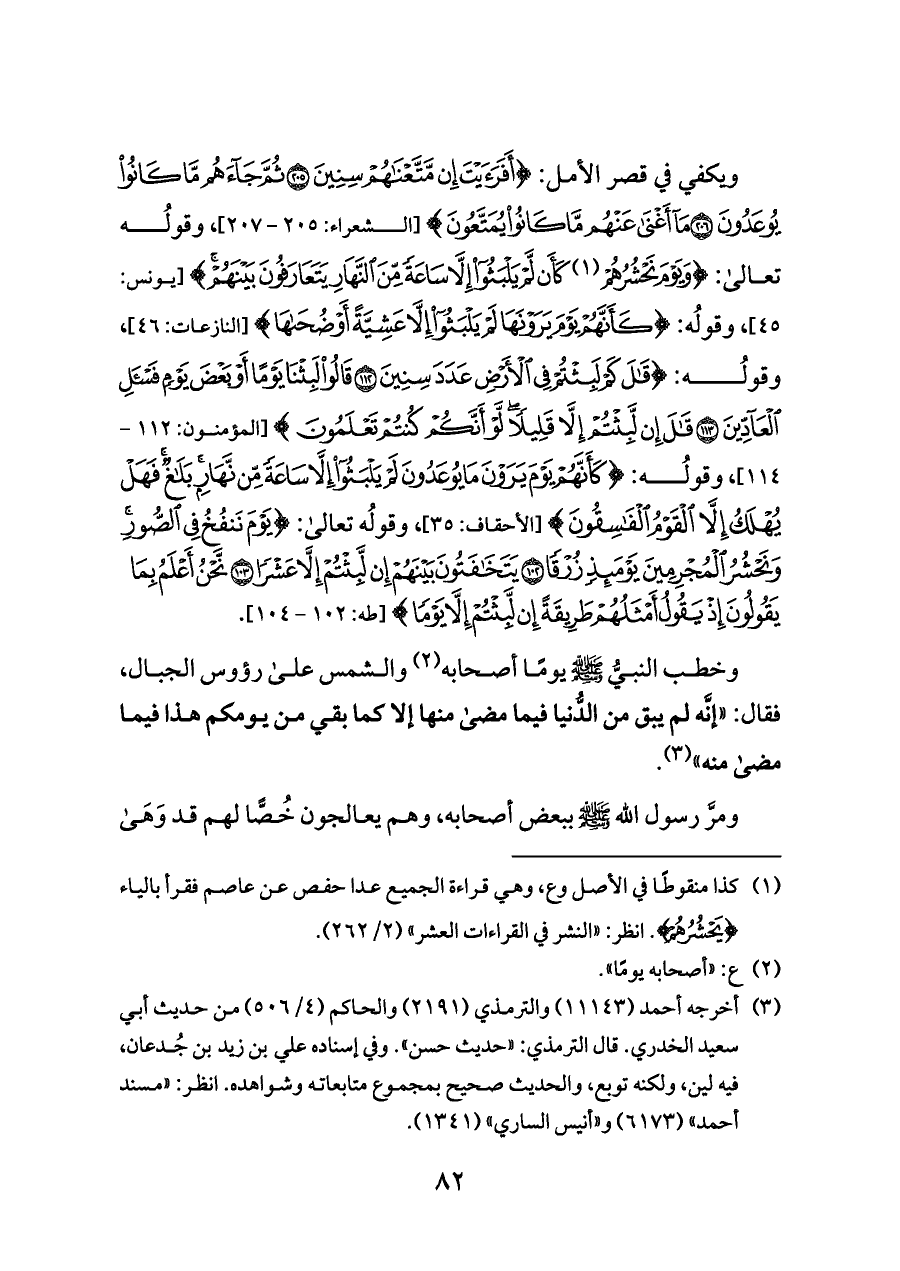 ويكفي في قصر الأمل: ﴿أَفَرَءَيْتَ إِن مَّتَّعْنَٰهُمْ سِنِينَ ۝٢٠٥ ثُمَّ جَآءَهُم مَّا كَانُوا۟
يُوعَدُونَ ۝٢٠٦ مَآ أَغْنَىٰ عَنْهُم مَّا كَانُوا۟ يُمَتَّعُونَ﴾ [الشعراء: ٢٠٥ - ٢٠٧]، وقولُه
تعالىٰ: ﴿وَيَوْمَ نَحْشُرُهُمْ (١) كَأَن لَّمْ يَلْبَثُوٓا۟ إِلَّا سَاعَةً مِّنَ ٱلنَّهَارِ يَتَعَارَفُونَ بَيْنَهُمْ ۚ﴾ [يونس:
٤٥]، وقولُه: ﴿كَأَنَّهُمْ يَوْمَ يَرَوْنَهَا لَمْ يَلْبَثُوٓا۟ إِلَّا عَشِيَّةً أَوْ ضُحَىٰهَا﴾ [النازعات: ٤٦]،
وقولُه: ﴿قَٰلَ كَمْ لَبِثْتُمْ فِى ٱلْأَرْضِ عَدَدَ سِنِينَ ۝١١٢ قَالُوا۟ لَبِثْنَا يَوْمًا أَوْ بَعْضَ يَوْمٍ فَسْـَٔلِ
ٱلْعَآدِّينَ ۝١١٣ قَٰلَ إِن لَّبِثْتُمْ إِلَّا قَلِيلًا ۖ لَّوْ أَنَّكُمْ كُنتُمْ تَعْلَمُونَ﴾ [المؤمنون: ١١٢ -
١١٤]، وقولُه: ﴿كَأَنَّهُمْ يَوْمَ يَرَوْنَ مَا يُوعَدُونَ لَمْ يَلْبَثُوٓا۟ إِلَّا سَاعَةً مِّن نَّهَارٍۭ ۚ بَلَٰغٌ ۚ فَهَلْ
يُهْلَكُ إِلَّا ٱلْقَوْمُ ٱلْفَٰسِقُونَ﴾ [الأحقاف: ٣٥]، وقولُه تعالىٰ: ﴿يَوْمَ نَنفُخُ فِى ٱلصُّورِ ۚ
وَنَحْشُرُ ٱلْمُجْرِمِينَ يَوْمَئِذٍ زُرْقًا ۝١٠٢ يَتَخَٰفَتُونَ بَيْنَهُمْ إِن لَّبِثْتُمْ إِلَّا عَشْرًا ۝١٠٣ نَّحْنُ أَعْلَمُ بِمَا
يَقُولُونَ إِذْ يَقُولُ أَمْثَلُهُمْ طَرِيقَةً إِن لَّبِثْتُمْ إِلَّا يَوْمًا﴾ [طه: ١٠٢ - ١٠٤].
وخطب النبيُّ ﷺ يومًا أصحابه(٢) والشمس علىٰ رؤوس الجبال،
فقال: «إنَّه لم يبق من الدُّنيا فيما مضىٰ منها إلا كما بقي من يومكم هذا فيما
مضىٰ منه»(٣).
ومرَّ رسول الله ﷺ ببعض أصحابه، وهم يعالجون خُصًّا لهم قد وَهَىٰ
(١) كذا منقوطًا في الأصل وع، وهي قراءة الجميع عدا حفص عن عاصم فقرأ بالياء
﴿يَحْشُرُهُمْ﴾. انظر: «النشر في القراءات العشر» (٢/ ٢٦٢).
(٢) ع: «أصحابه يومًا».
(٣) أخرجه أحمد (١١١٤٣) والترمذي (٢١٩١) والحاكم (٤/ ٥٠٦) من حديث أبي
سعيد الخدري. قال الترمذي: «حديث حسن». وفي إسناده علي بن زيد بن جُدعان،
فيه لين، ولكنه توبع، والحديث صحيح بمجموع متابعاته وشواهده. انظر: «مسند
أحمد» (٦١٧٣) و«أنيس الساري» (١٣٤١).
٨٢